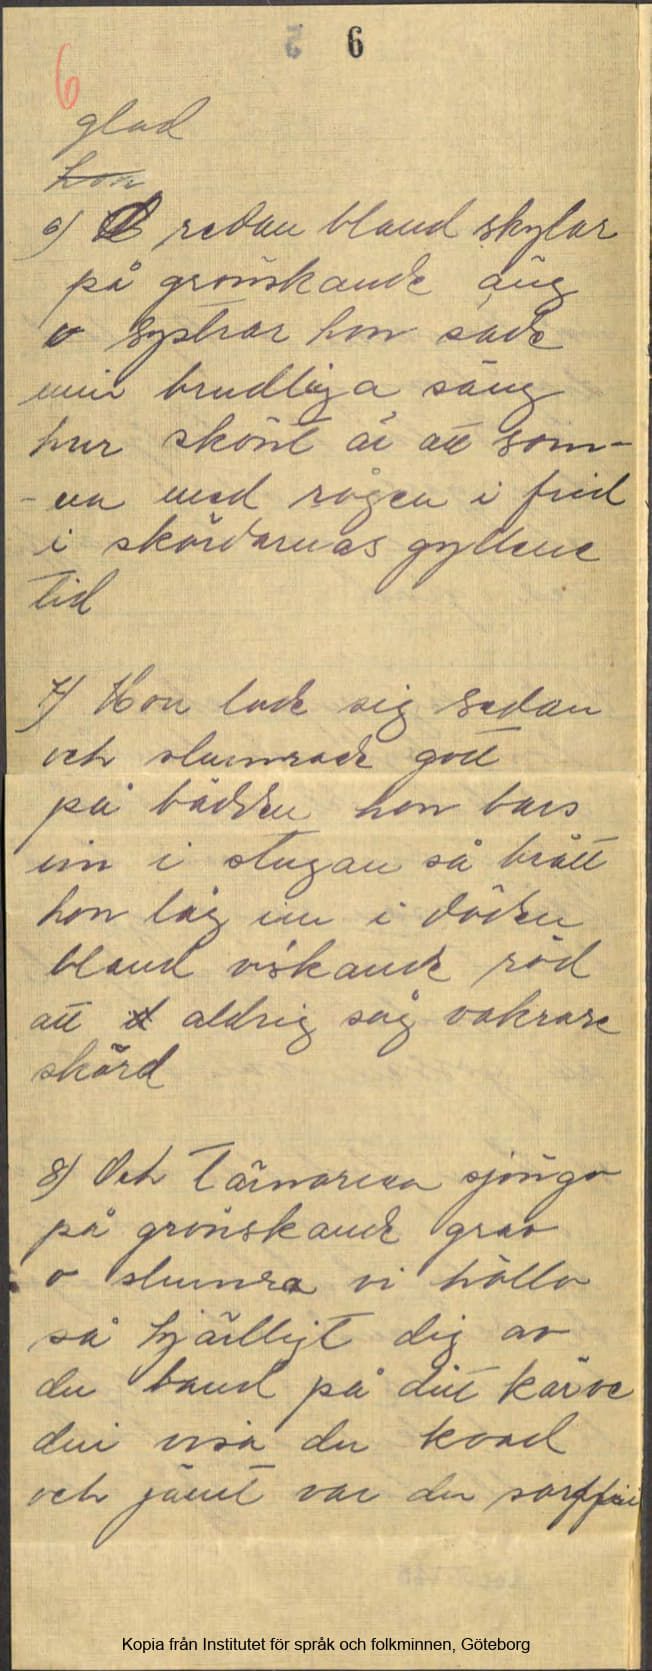 6
6
glad
hon
6) redan bland skylar
på grönskande äng
o systrar hon sade
min brudliga säng
hur skönt är att som-
-na med rågen i frid
i skördarnas gyllene
tid
7) Hon lade sig sedan
och slumrade gott
på bädden hon bars
in i stugan så brått
hon låg in i döden
bland viskande röd
att aldrig såg vakrare
skörd
8) Och tärnorna sjöngo
på grönskande grav
o slumra vi höllo
så hjärtligt dig av
du band på ditt kärve
din visa du kvad
och jämt var du sorgfri
Kopia från Institutet för språk och folkminnen, Göteborg